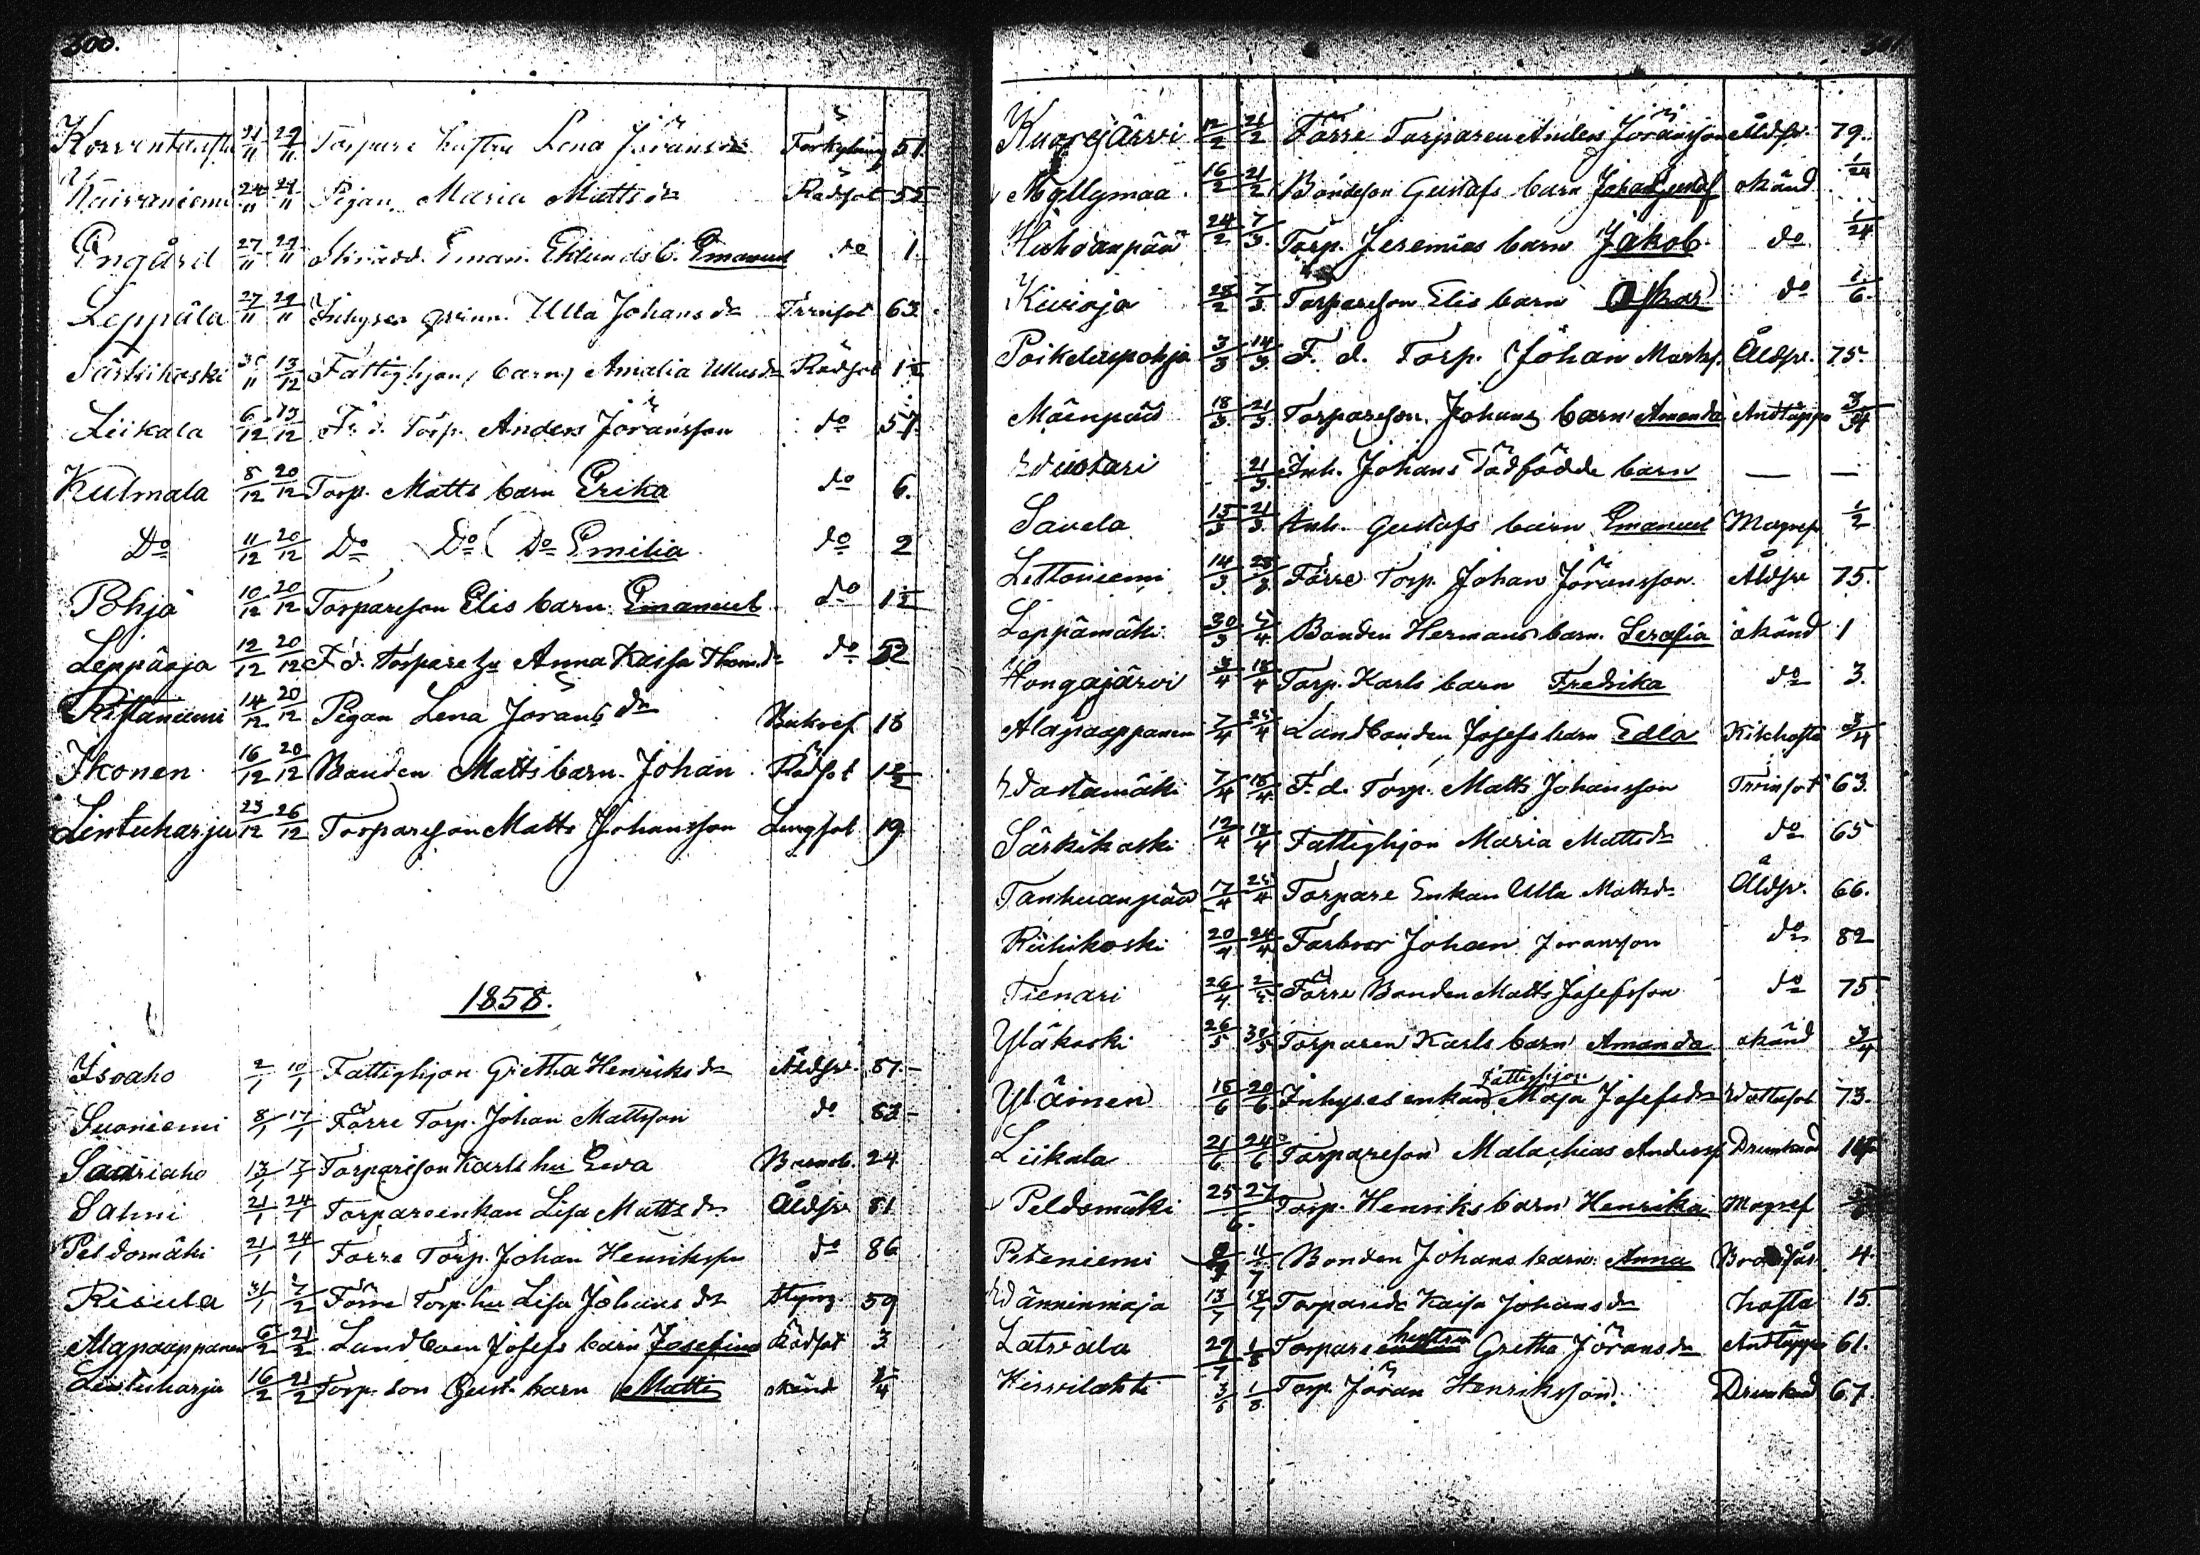 300.
Korventausta 21/11 29/11 Torpare hustru Lena Jöransdr Förkylning 51.
Raivaniemi 24/11 29/11 Pigan Maria Mattsdr Rödsot 55
Engård 27/11 29/11 Skrädd. Eman. Eklunds b. Emanuel do 1.
Leppälä 27/11 29/11 Inhyses qvinn. Ulla Johansdr Trånsot 63.
Särkikoski 30/11 13/12 Fattighjon, barn, Amalia Ullasdr Rödsot 1 1/2
Liikala 6/12 13/12 F. d. Torp. Anders Jöransson do 57.
Kulmala 8/12 20/12 Torp. Matts barn Erika do 6.
Do 11/12 20/12 Do Do Do Emilia do 2
Pohja 10/12 20/12 Torpareson Elis barn Emanuel do 1 1/2
Leppäoja 12/12 20/12 F. d. Torpare hu Anna Kaisa Thom.dr do 52
Ristaniemi 14/12 20/12 Pigan Lena Jöransdr Bukref 18
Ikonen 16/12 20/12 Bonden Matts barn Johan Rödsot 1 1/2
Lintuharju 23/12 26/12 Torpareson Matts Johansson Lungsot 19.
1858.
Isoaho 2/1 10/1 Fattighjon Gretha Henriksdr Åldsv. 81.
Suoniemi 8/1 17/1 Förre Torp. Johan Mattsson do 83
Saariaho 13/1 17/1 Torpareson Karls hu Ewa Barnsb. 24
Salmi 21/1 24/1 Torpareenkan Lisa Mattsdr Åldsv 81
Peldomäki 21/1 24/1 Förre Torp. Johan Henriksson do 86
Risula 31/1 7/2 Förre Torp. hu Lisa Johansdr Styng. 59
Alapaappanen 6/2 21/2 Landboen Josefs barn Josefina Rödsot 3
Lintuharju 16/2 21/2 Torp. son Gust. barn Matts okänd 3/4
301
Kuorejärvi 12/2 21/2 Förre Torparen Anders Jöransson Åldsv. 79.
Myllymaa 16/2 21/2 Bondeson Gustafs barn Johan Gustaf okänd 1/24
Huhdanpää 24/2 7/3 Torp. Jeremias barn Jakob do 1/24
Kivioja 28/2 7/3 Torpareson Elis barn Oskar do 1/6.
Poikeluspohja 3/3 14/3 F. d. Torp. Johan Matts. Åldsv. 75.
Mäenpää 18/3 21/3 Torpareson Johans barn Amanda Andtäppa 3/4
Wuotari 21/3 Inh. Johans Dödfödde barn — —
Savela 15/3 21/3 Inh. Gustafs barn Emanuel Magref 1/2
Lettoniemi 14/3 28/3 Förre Torp. Johan Jöransson Åldsv 75.
Leppämäki 30/3 5/4 Bonden Hermans barn Serafia okänd 1
Hongajärvi 3/4 18/4 Torp. Karls barn Fredrika do 3.
Alapaappanen 7/4 25/4 Landbonden Josefs barn Edla Kikhosta 3/4
Wastamäki 7/4 18/4 F. d. Torp. Matts Johansson Trånsot 63.
Särkikoski 12/4 18/4 Fattighjon Maria Mattsdr do 65
Tanhuanpää 17/4 25/4 Torpare Enkan Ulla Mattsdr Åldsv. 66.
Riihikoski 20/4 24/4 Farbror Johan Jöransson do 82
Tienari 26/4 2/5 Förre Bonden Matts Josefsson do 75
Yläkoski 26/5 30/5 Torparen Karls barn Amanda okänd 3/4
Yläinen 15/6 20/6 Inhyses enkan Fattighjon Maja Josefsdr Wattusot 73.
Liikala 21/6 24/6 Torpareson Malachias Anderss. Drunknad
Peldomäki 25/6 27/6 Torp. Henriks barn Henrika Magref
Reteniemi 11/7 Bonden Johans barn Anna 4.
Wänninmaja 13/7 18/7 Torparedr Kaisa Johansdr hosta 15
Latvala 29/7 1/8 Torpare hustrun Gretha Jöransdr Andtäppa 61.
Hirvilahti 3/8 1/8 Torp. Jöran Henriksson. Drunknad 67.